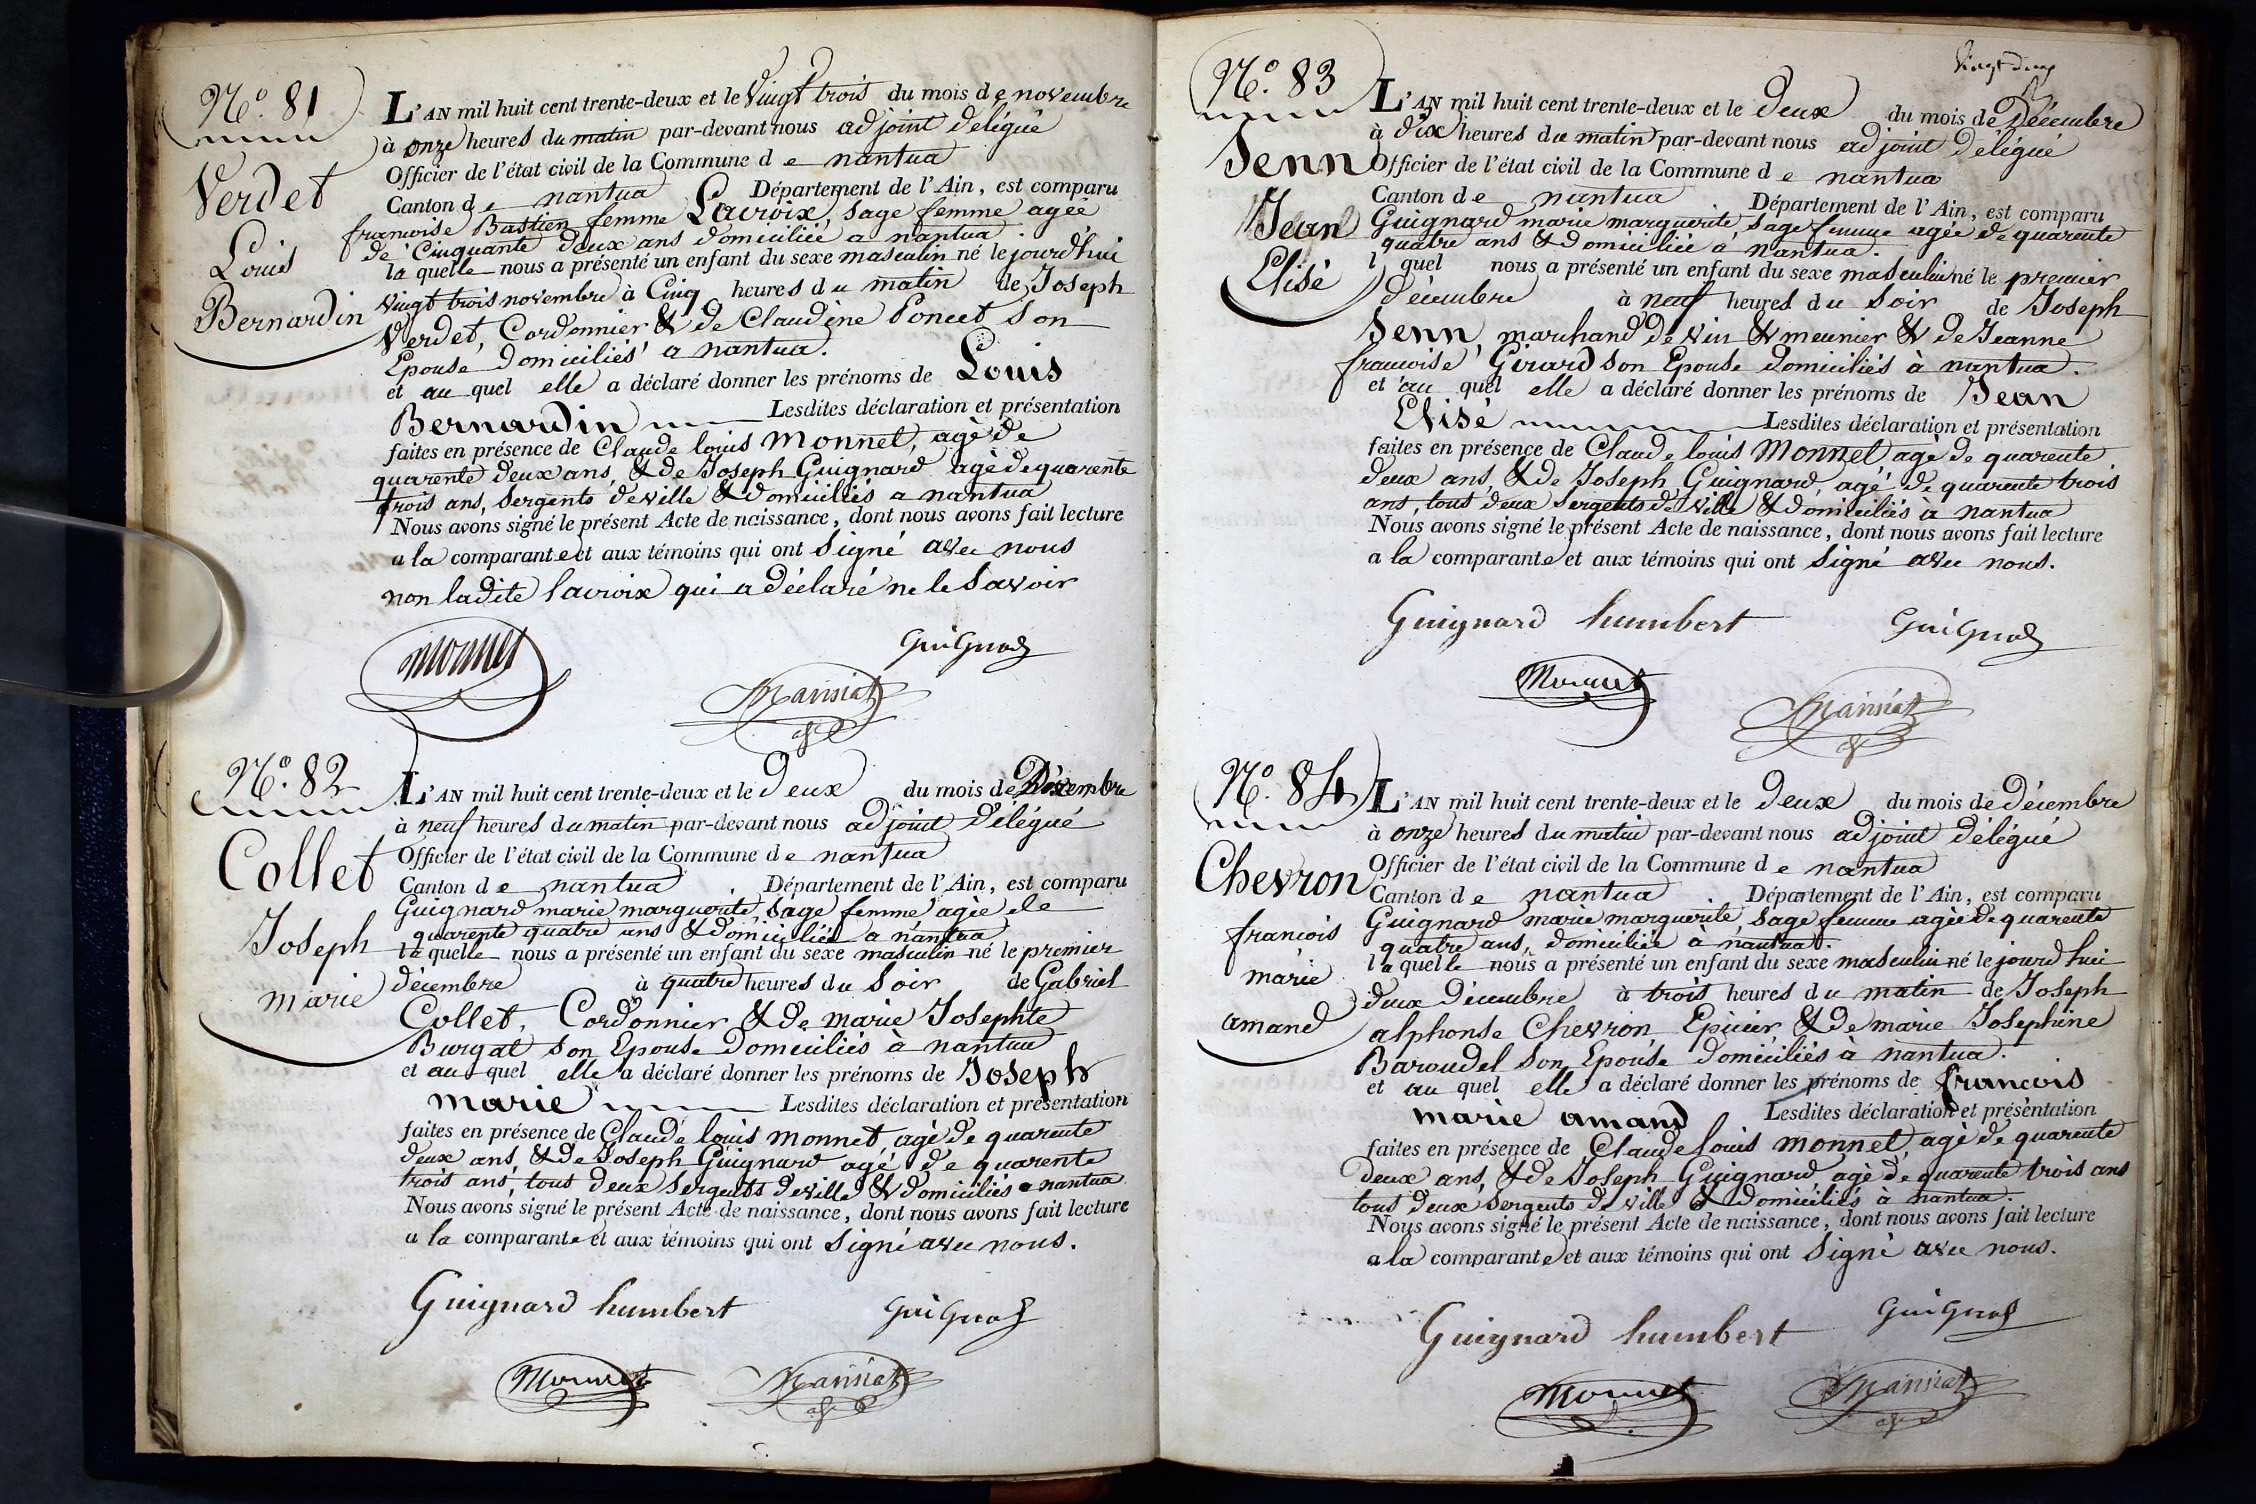 N.o 81
Verdet
Louis
Bernardin
L'AN mil huit cent trente-deux et le Vingt trois du mois de novembre
à onze heures du matin par-devant nous adjoint délégué
Officier de l'état civil de la Commune de nantua
Canton de nantua Département de l'Ain, est comparu
francoise Bastien femme Lacroix, Sage femme agée
de Cinquante deux ans domiciliée a nantua.
la quelle nous a présenté un enfant du sexe masculin né le jourd'hui
Vingt trois novembre à Cinq heures du matin de Joseph
Verdet, Cordonnier & de Claudine Poncet Son
Epouse domiciliés a nantua.
et au quel elle a déclaré donner les prénoms de Louis
Bernardin Lesdites déclaration et présentation
faites en présence de Claude louis Monnet, agé de
quarente deux ans, & de Joseph Guignard agé de quarente
trois ans, Sergents de ville & domiciliés a nantua
Nous avons signé le présent Acte de naissance, dont nous avons fait lecture
a la comparante et aux témoins qui ont Signé avec nous
non ladite lacroix qui a déclaré ne le Savoir
Monnet
Guignard
Mansiat
N.o 82
Collet
Joseph
marie
L'AN mil huit cent trente-deux et le deux du mois de Décembre
à neuf heures du matin par-devant nous adjoint délégué
Officier de l'état civil de la Commune de nantua
Canton de nantua. Département de l'Ain, est comparu
Guignard marie marguerite, Sage femme agée de
quarente quatre ans & domiciliée a nantua
la quelle nous a présenté un enfant du sexe masculin né le premier
décembre à quatre heures du Soir de Gabriel
Collet, Cordonnier & de marie Josephte
Burgat Son Epouse domiciliés à nantua
et au quel elle a déclaré donner les prénoms de Joseph
marie Lesdites déclaration et présentation
faites en présence de Claude louis monnet, agé de quarente
deux ans, & de Joseph Guignard agé de quarente
trois ans, tous deux Sergents de ville & domiciliés a nantua
Nous avons signé le présent Acte de naissance, dont nous avons fait lecture
a la comparante et aux témoins qui ont Signé avec nous.
Guignard humbert
Guignard
Monnet
Mansiat
Vingt deux
N.o 83
Jenn
Jean
Elisé
L'AN mil huit cent trente-deux et le deux du mois de Décembre
à dix heures du matin par-devant nous adjoint délégué
Officier de l'état civil de la Commune de nantua
Canton de nantua Département de l'Ain, est comparu
Guignard marie marguerite, Sage femme agée de quarente
quatre ans & domiciliée a nantua.
l quel nous a présenté un enfant du sexe masculin né le premier
décembre à neuf heures du Soir de Joseph
Jenn marchand de vin & meunier & de Jeanne
francoise Girard son Epouse domiciliés à nantua.
et au quel elle a déclaré donner les prénoms de Jean
Elisé Lesdites déclaration et présentation
faites en présence de Claude louis Monnet agé de quarente
deux ans, & de Joseph Guignard, agé de quarente trois
ans, tous deux Sergents de Ville & domiciliés à nantua
Nous avons signé le présent Acte de naissance, dont nous avons fait lecture
a la comparante et aux témoins qui ont Signé avec nous.
Guignard humbert
Guignard
Monnet
Mansiat
N.o 84
Chevron
francois
marie
amand
L'AN mil huit cent trente-deux et le deux du mois de décembre
à onze heures du matin par-devant nous adjoint délégué
Officier de l'état civil de la Commune de nantua
Canton de nantua. Département de l'Ain, est comparu
Guignard marie marguerite, Sage femme agée de quarente
quatre ans, domiciliée à nantua.
la quelle nous a présenté un enfant du sexe masculin né le jourd'hui
deux décembre à trois heures du matin de Joseph
alphonse Chevron Epicier & de marie Josephine
Baroudel Son Epouse domiciliés à nantua.
et au quel elle a déclaré donner les prénoms de francois
marie amand Lesdites déclaration et présentation
faites en présence de Claude louis monnet, agé de quarente
deux ans, & de Joseph Guignard, agé de quarente trois ans
tous deux Sergents de ville & domiciliés à nantua.
Nous avons signé le présent Acte de naissance, dont nous avons fait lecture
a la comparante et aux témoins qui ont Signé avec nous.
Guignard humbert
Guignard
Monnet
Mansiat